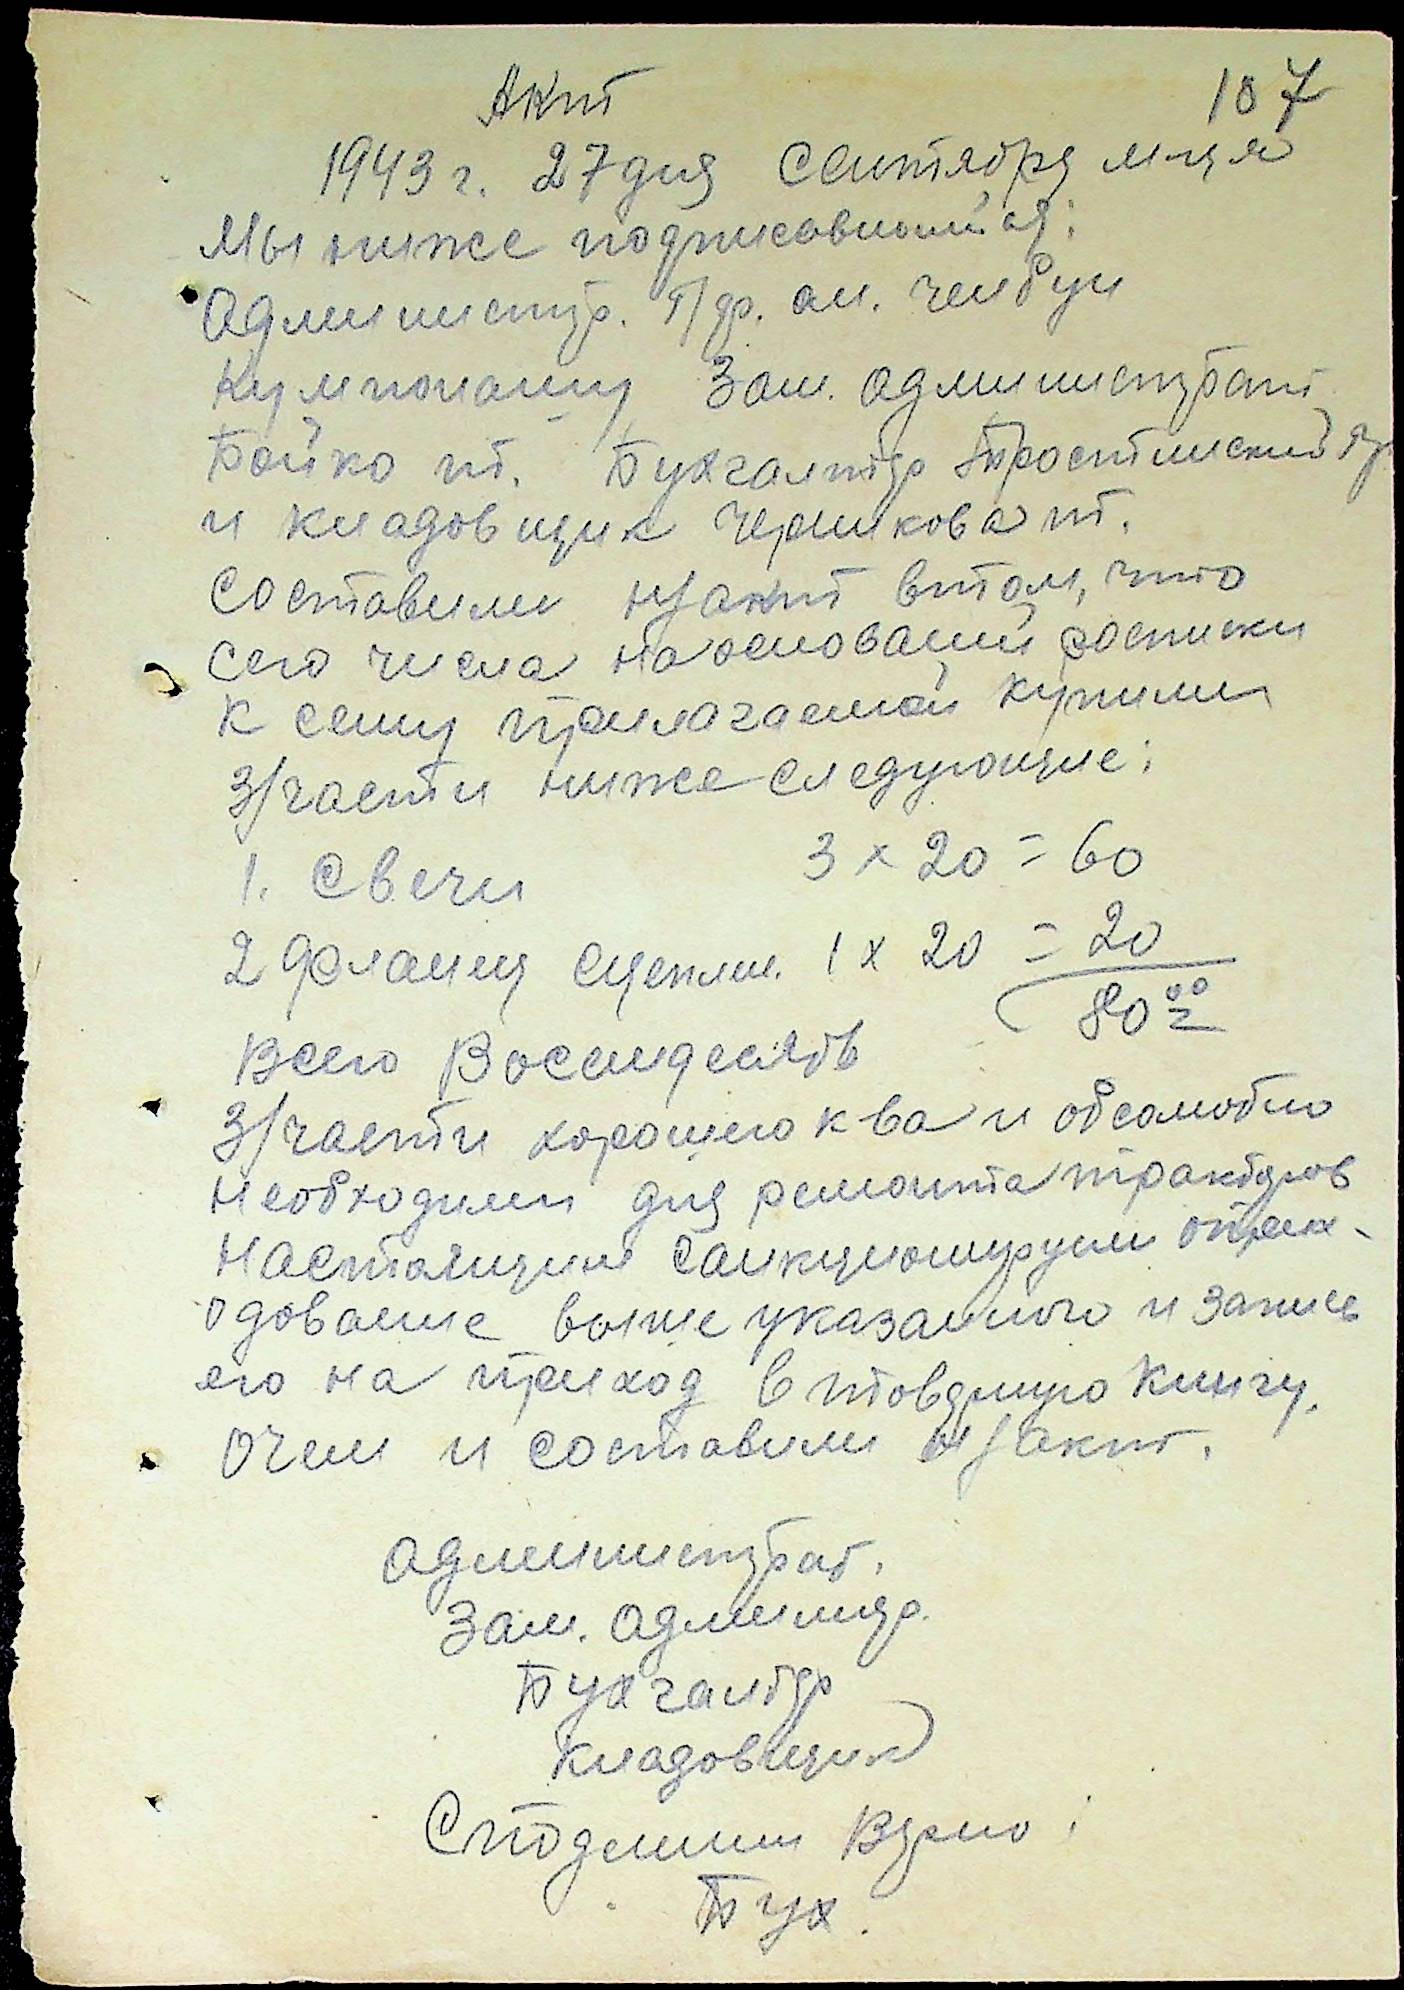 Акт
107
1943 г. 27 дня Сентября м-ця
Мы ниже подписавшийся:
Администр. П/др. ам. Чембул
Кумпонашу Зам. администрат
Бойко т. Бухгалтер
и кладовщик Черникова т.
Составили н/акт втом, что
сего числа на основании росписки
К сему прилагаемой купили
З/части ниже следующие:
1. Свечи 3 х 20 = 60
2 Фланец сцеплен. 1 х 20 = 20
80 00
Всего Восемдесять
З/части хорошего к ва и обсолютно
необходими для ремонта тракторов
Настоящим санкционируем
одование выше указанного и запись
его на приход в товарную Книгу.
Очем и составили н/акт.
Администрат.
Зам. Админир.
Бухгалтер
Кладовщик
Сподлиним Верно:
Бух.